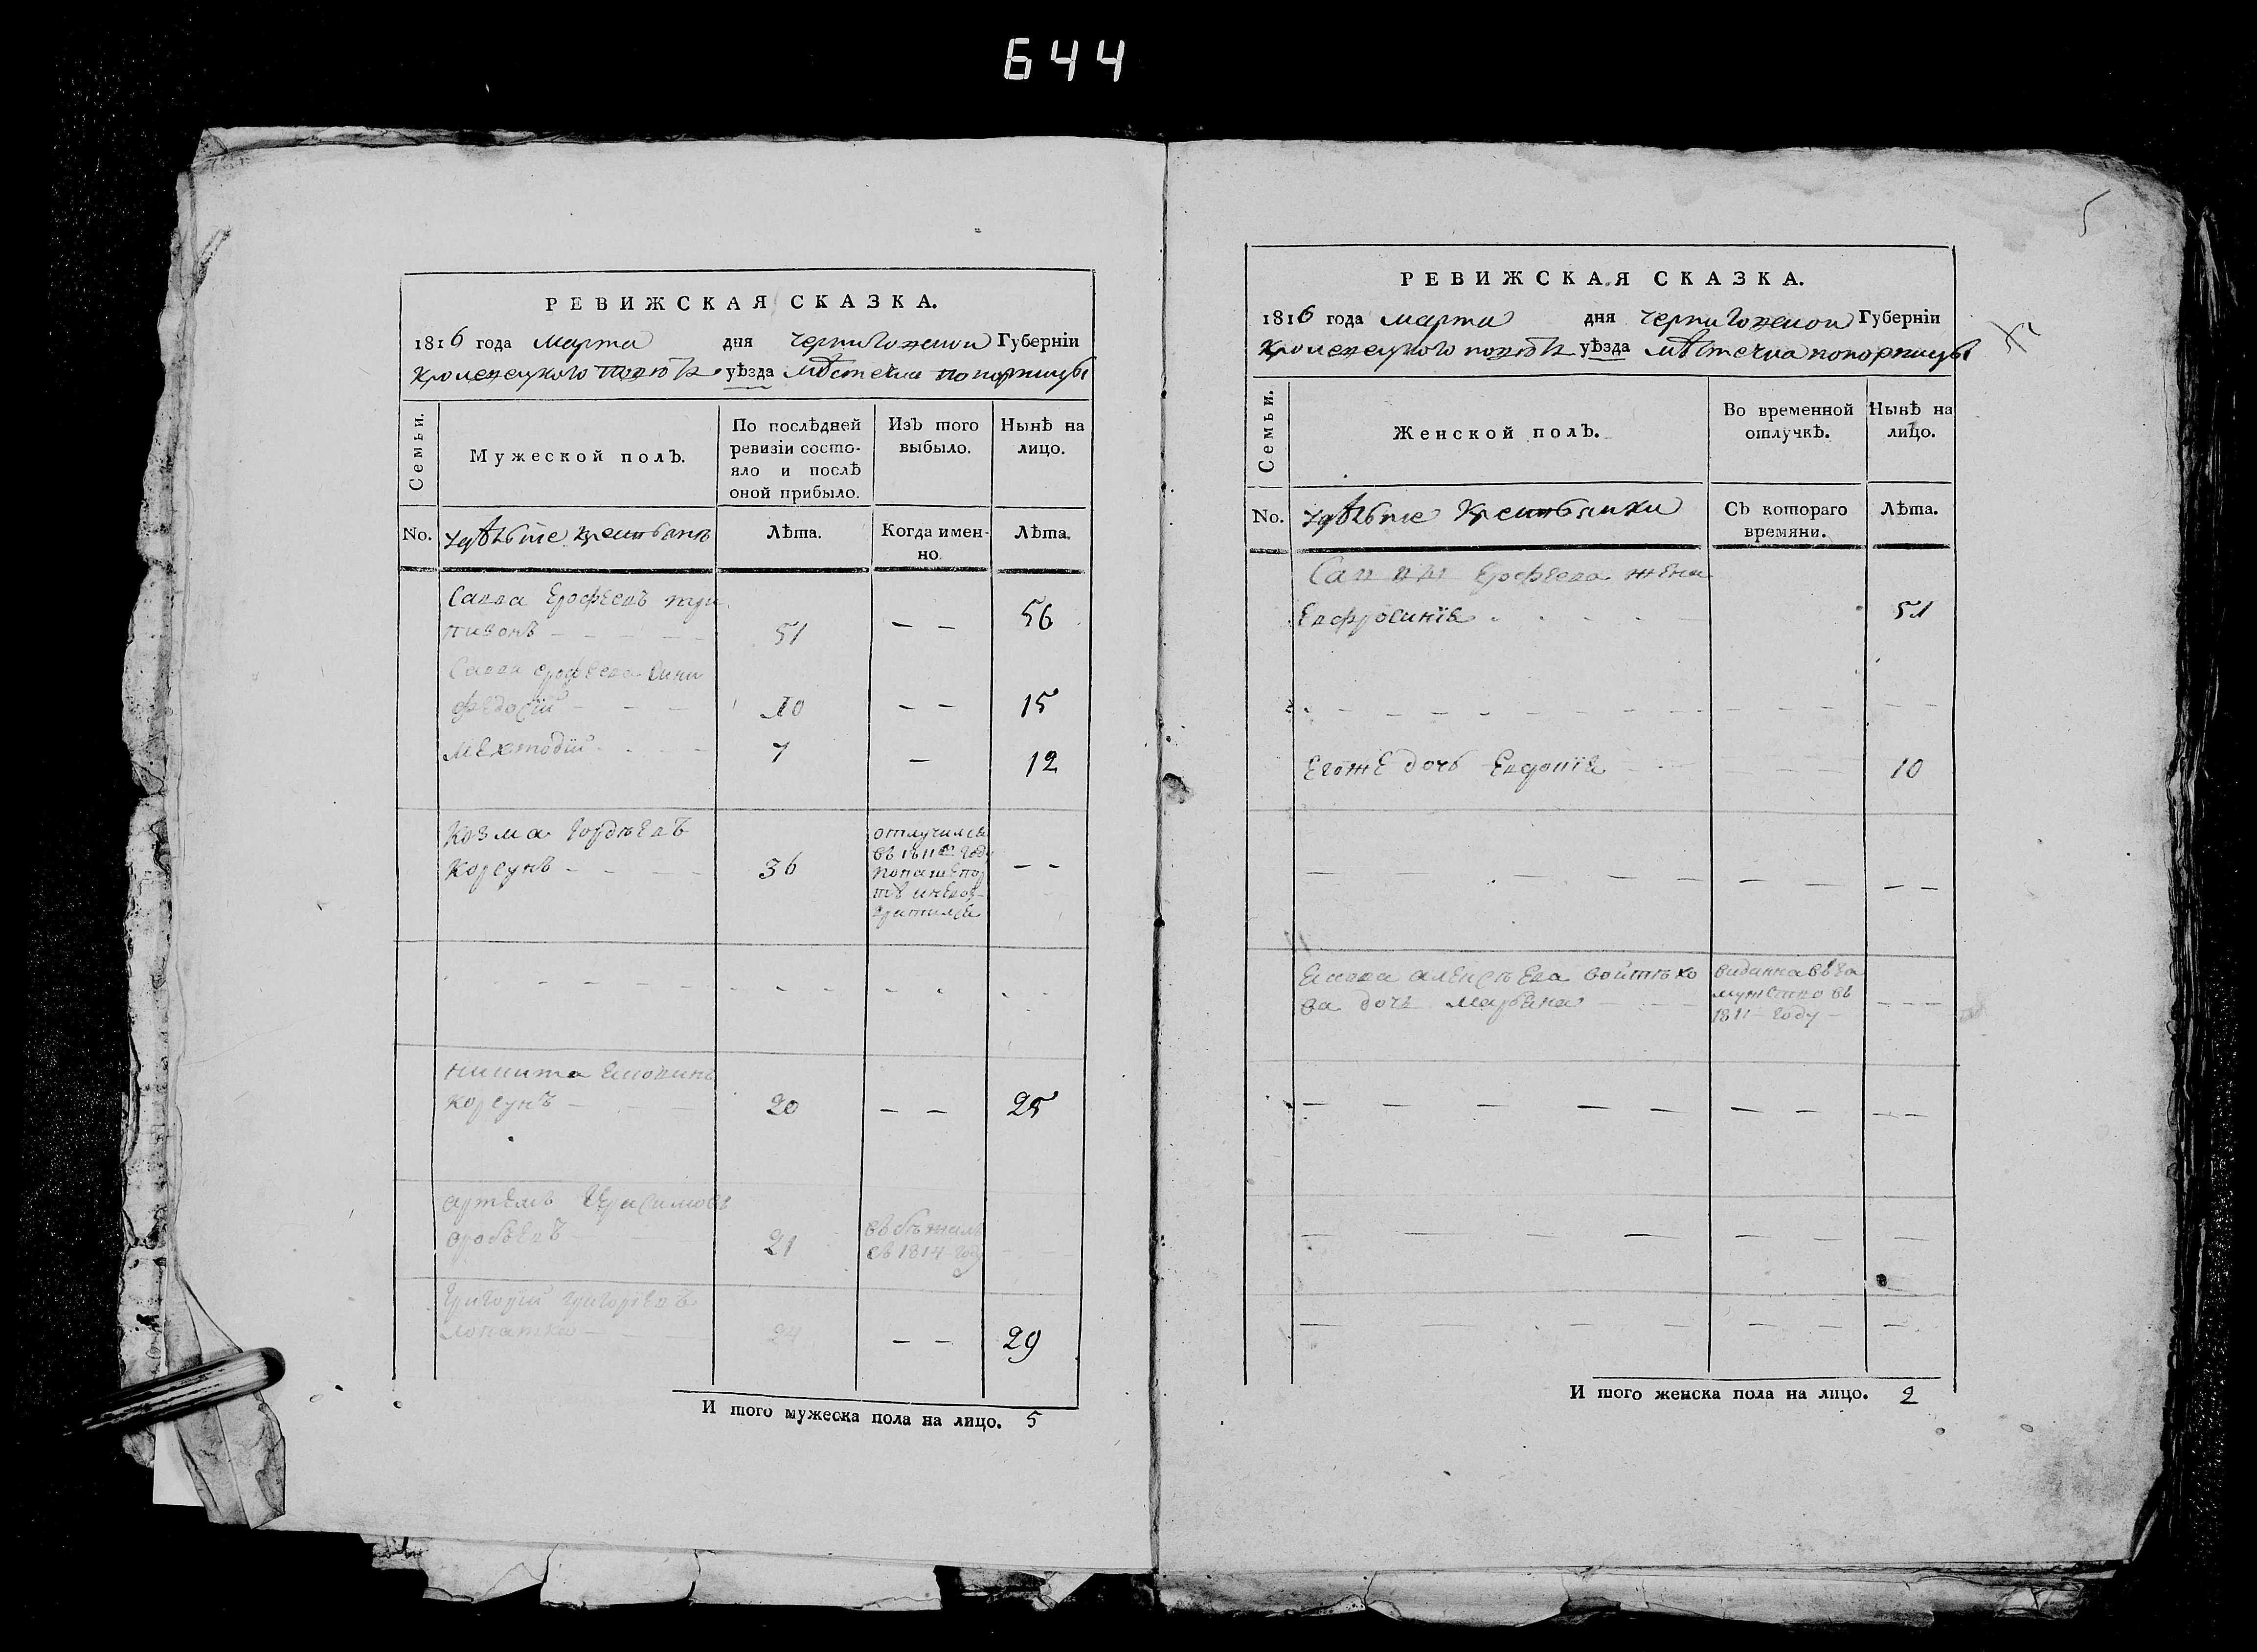 644
5
РЕВИЖСКАЯ СКАЗКА.
1816 года марта дня черниговской Губерніи
кролевецкого повѣта уѣзда мѣстечка понорницы
Семьи.
Мужеской полъ.
По послѣдней ревизіи состо-
яло и послѣ
оной прибыло.
Изъ того
выбыло.
Нынѣ на
лицо.
No.
удѣльніе крестьяне
Лѣта.
Когда имен-
но.
Лѣта.
Савва Ерофеевъ
51 — — 56
Савви ерофеева сини
федосій — — — 10 — — 15
мехтодій 7 — 12
Козма Гордѣевъ
Корсунъ 36 — —
отлучился
въ 1811м году
попашпор
тѣ иневоз
вратился
никита
Корсунъ — 20 — — 25
артемъ Герасимовъ
21
въ 1814 году
Григорій григоріевъ
лопатка — 24 — — 29
И того мужеска пола на лицо. 5
РЕВИЖСКАЯ СКАЗКА.
1816 года марта дня черниговской Губерніи
кролевецкого повѣта уѣзда мѣстечка понорницы
Семьи.
Женской полъ.
Во временной
отлучкѣ.
Нынѣ на
лицо.
No.
удѣльніе крестьянки
Съ котораго
времяни.
Лѣта.
Савви Ерофеева жена
Евфросинія 51
Егоже дочь Евдокія 10
алексѣева войтѣхо
ва дочь Марьяна
виданна въза
мужство въ
1811 году
И того женска пола на лицо. 2